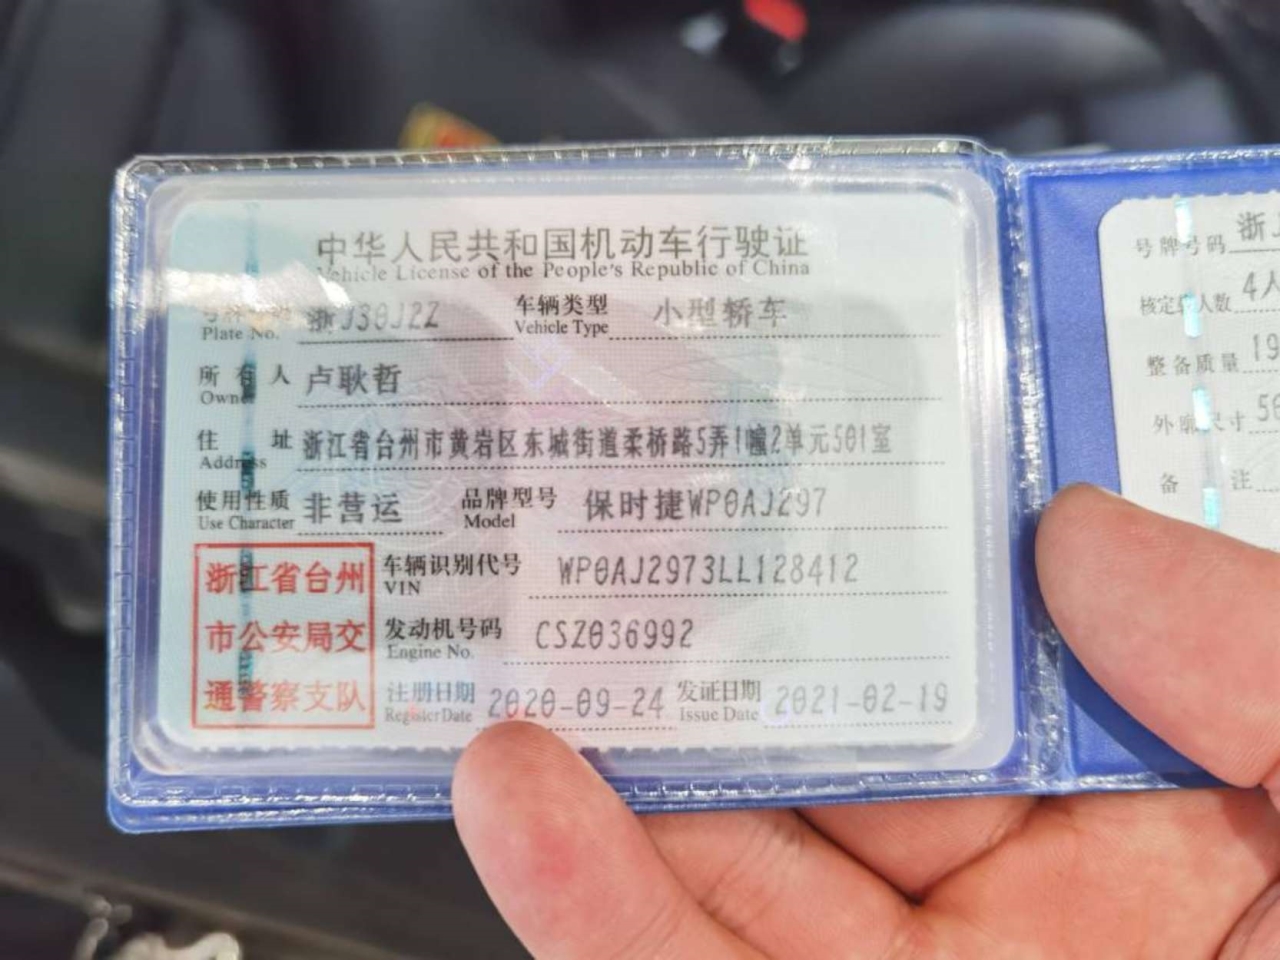 中华人民共和国机动车行驶证
Vehicle License of the People's Republic of China
号牌号码 浙J30J2Z 车辆类型 小型轿车
Plate No. Vehicle Type
所有人 卢耿哲
Owner
住址 浙江省台州市黄岩区东城街道柔桥路5弄1幢2单元501室
Address
使用性质 非营运 品牌型号 保时捷WP0AJ297
Use Character Model
浙江省台州
市公安局交
通警察支队
车辆识别代号 WP0AJ2973LL128412
VIN
发动机号码 CSZ036992
Engine No.
注册日期 2020-09-24 发证日期 2021-02-19
Register Date Issue Date
号牌号码 浙J
核定载人数 4人
整备质量 19
外廓尺寸 50
备注